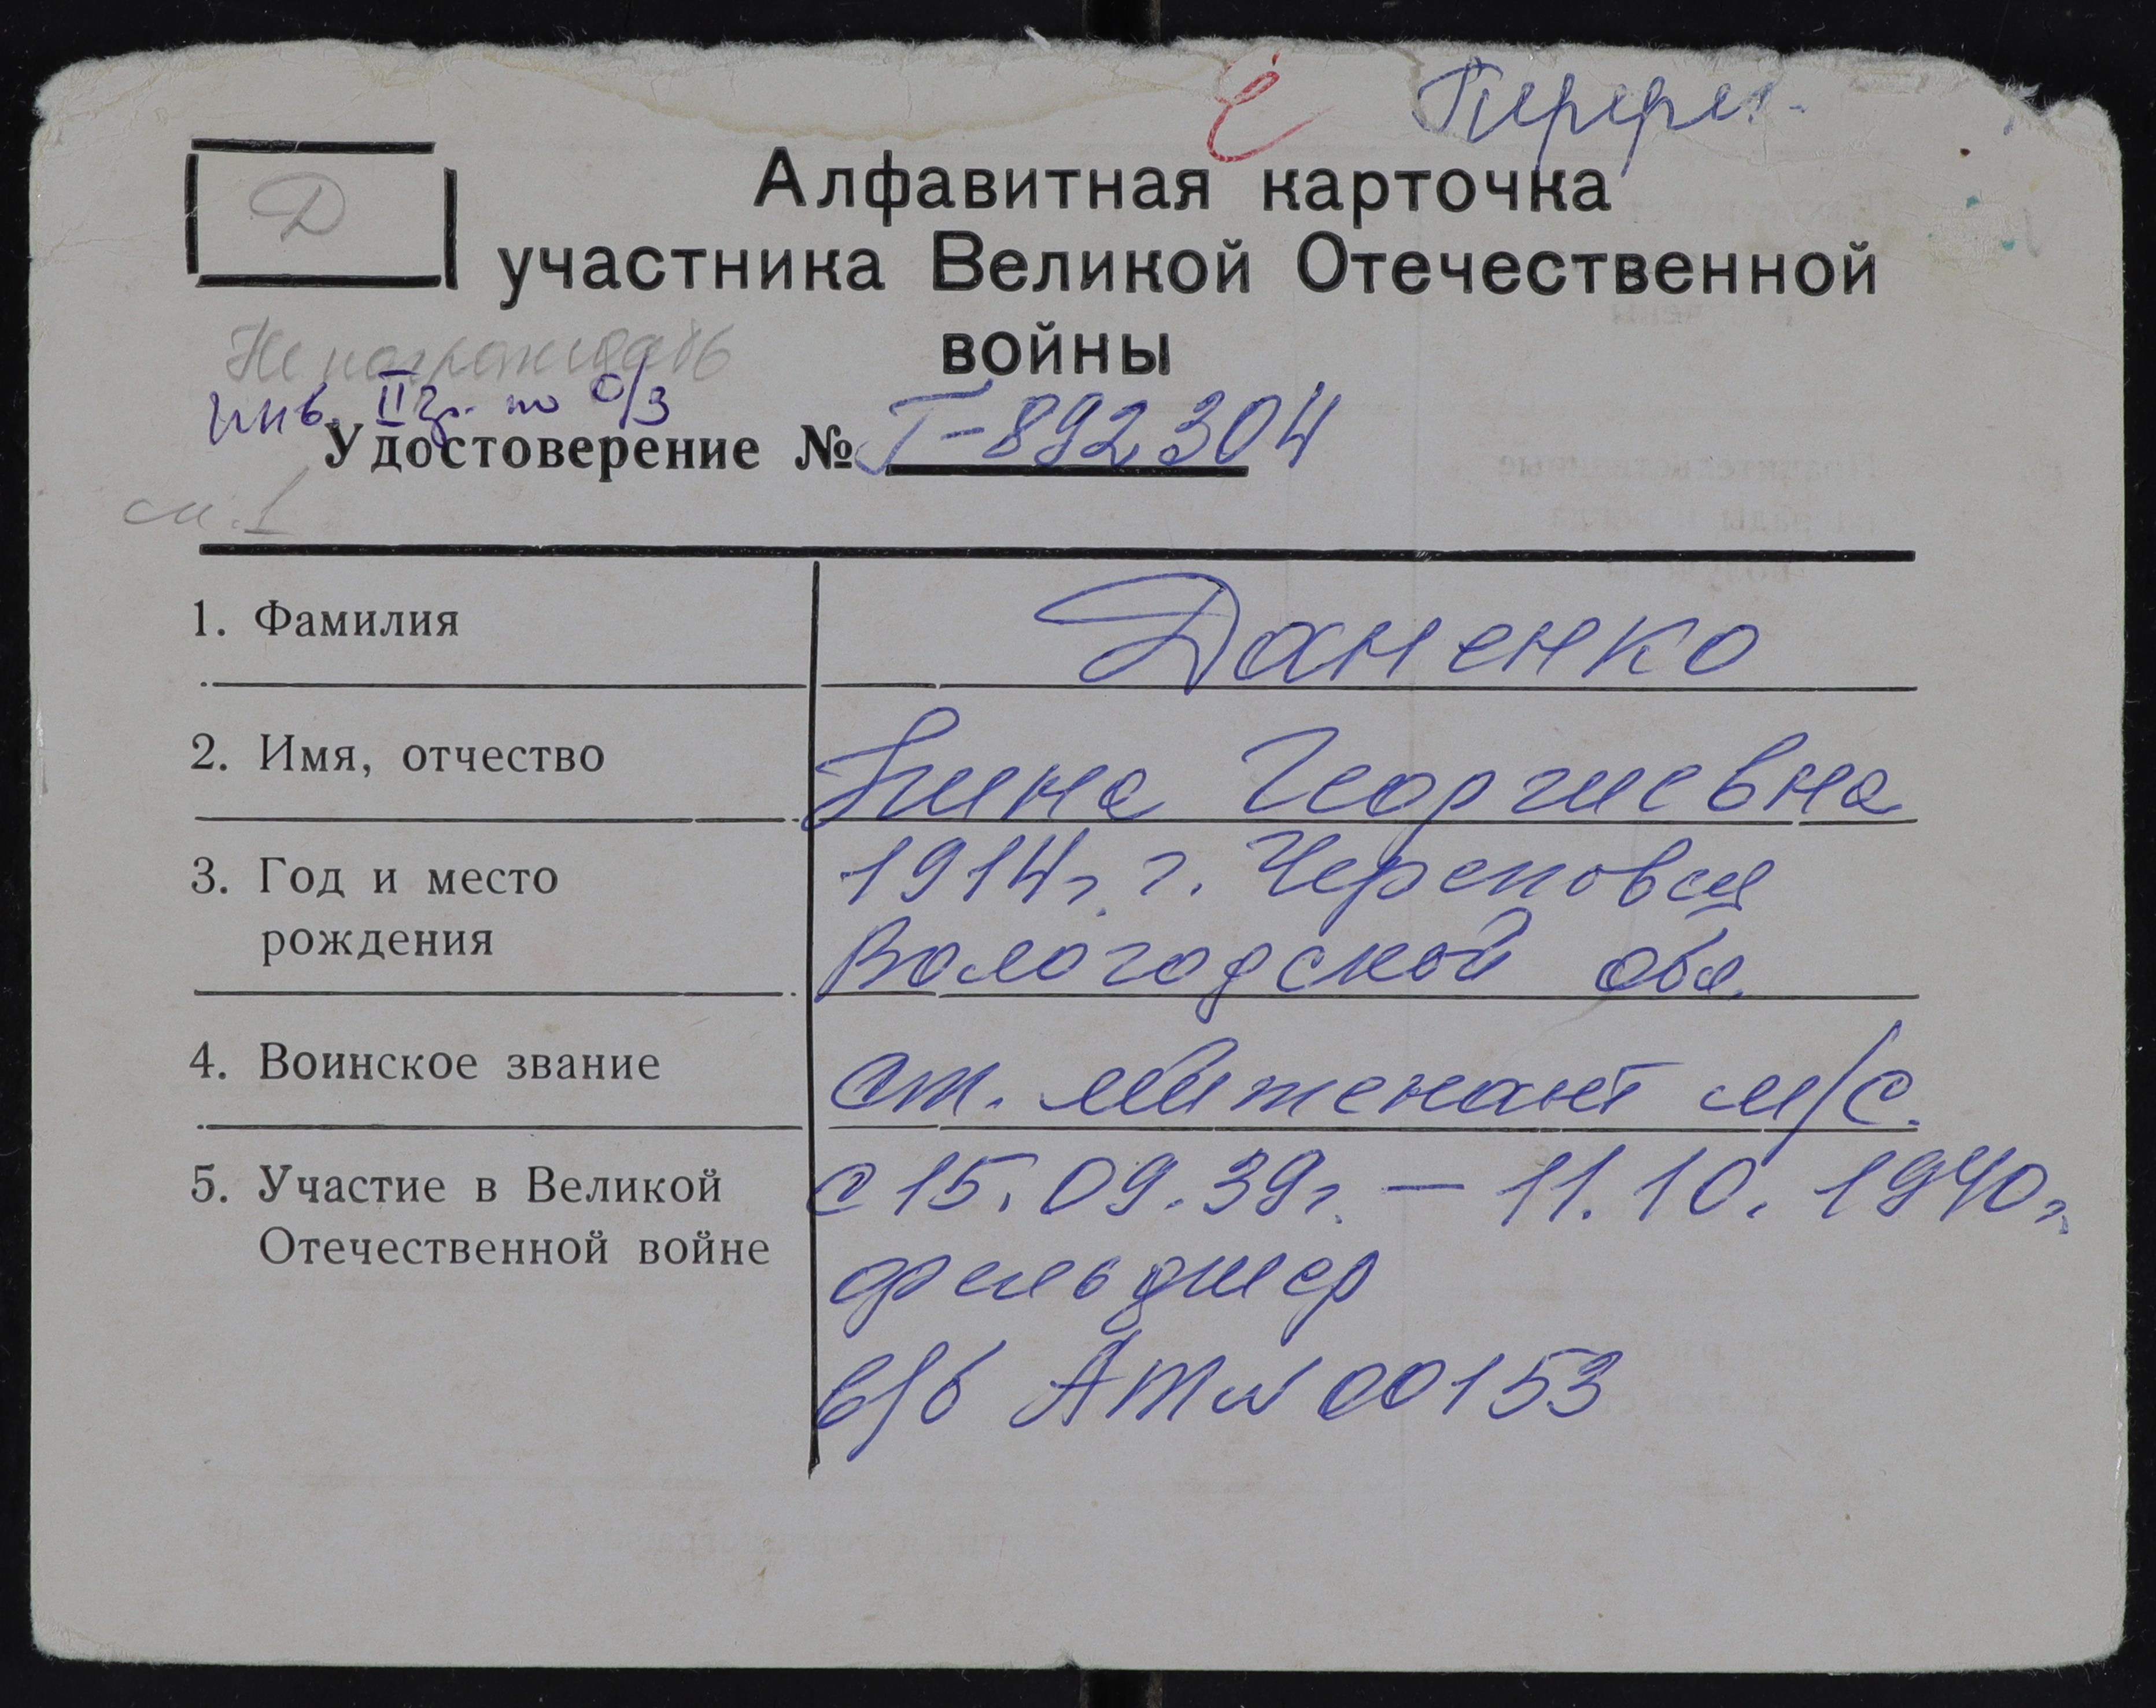 Перерег.
Д
Алфавитная карточка
участника Великой Отечественной
войны
Не награждать
инв. II гр. по о/з
Удостоверение № Г-892304
см. 1
1. Фамилия
Даненко
2. Имя, отчество
Нина Георгиевна
3. Год и место
рождения
1914г. г. Череповец
Вологодской обл.
4. Воинское звание
ст. лейтенант м/с.
5. Участие в Великой
Отечественной войне
с 15.09.39г. — 11.10.1940г.
фельдшер
в/б АТ № 00153